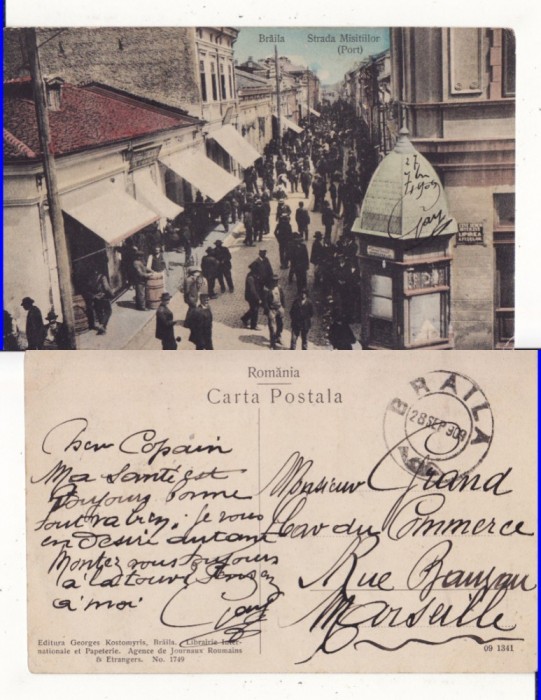 Brăila Strada Misitiilor
(Port)
27
7bre
1909
Gay
LIPIREA
AFISELOR
România
Carta Postala
BRAILA
28 SEP 909
Cher Copain
Ma Santé est
Toujours bonne
tout va bien. je vous
en desire autant
Montez vous toujours
à la
à moi
Gay
Monsieur Grand
Bav du Commerce
Rue
Marseille
Editura Georges Kostomyris, Brăila. Librairie Inter-
nationale et Papeterie. Agence de Journaux Roumains
& Etrangers. No. 1749
09 1341